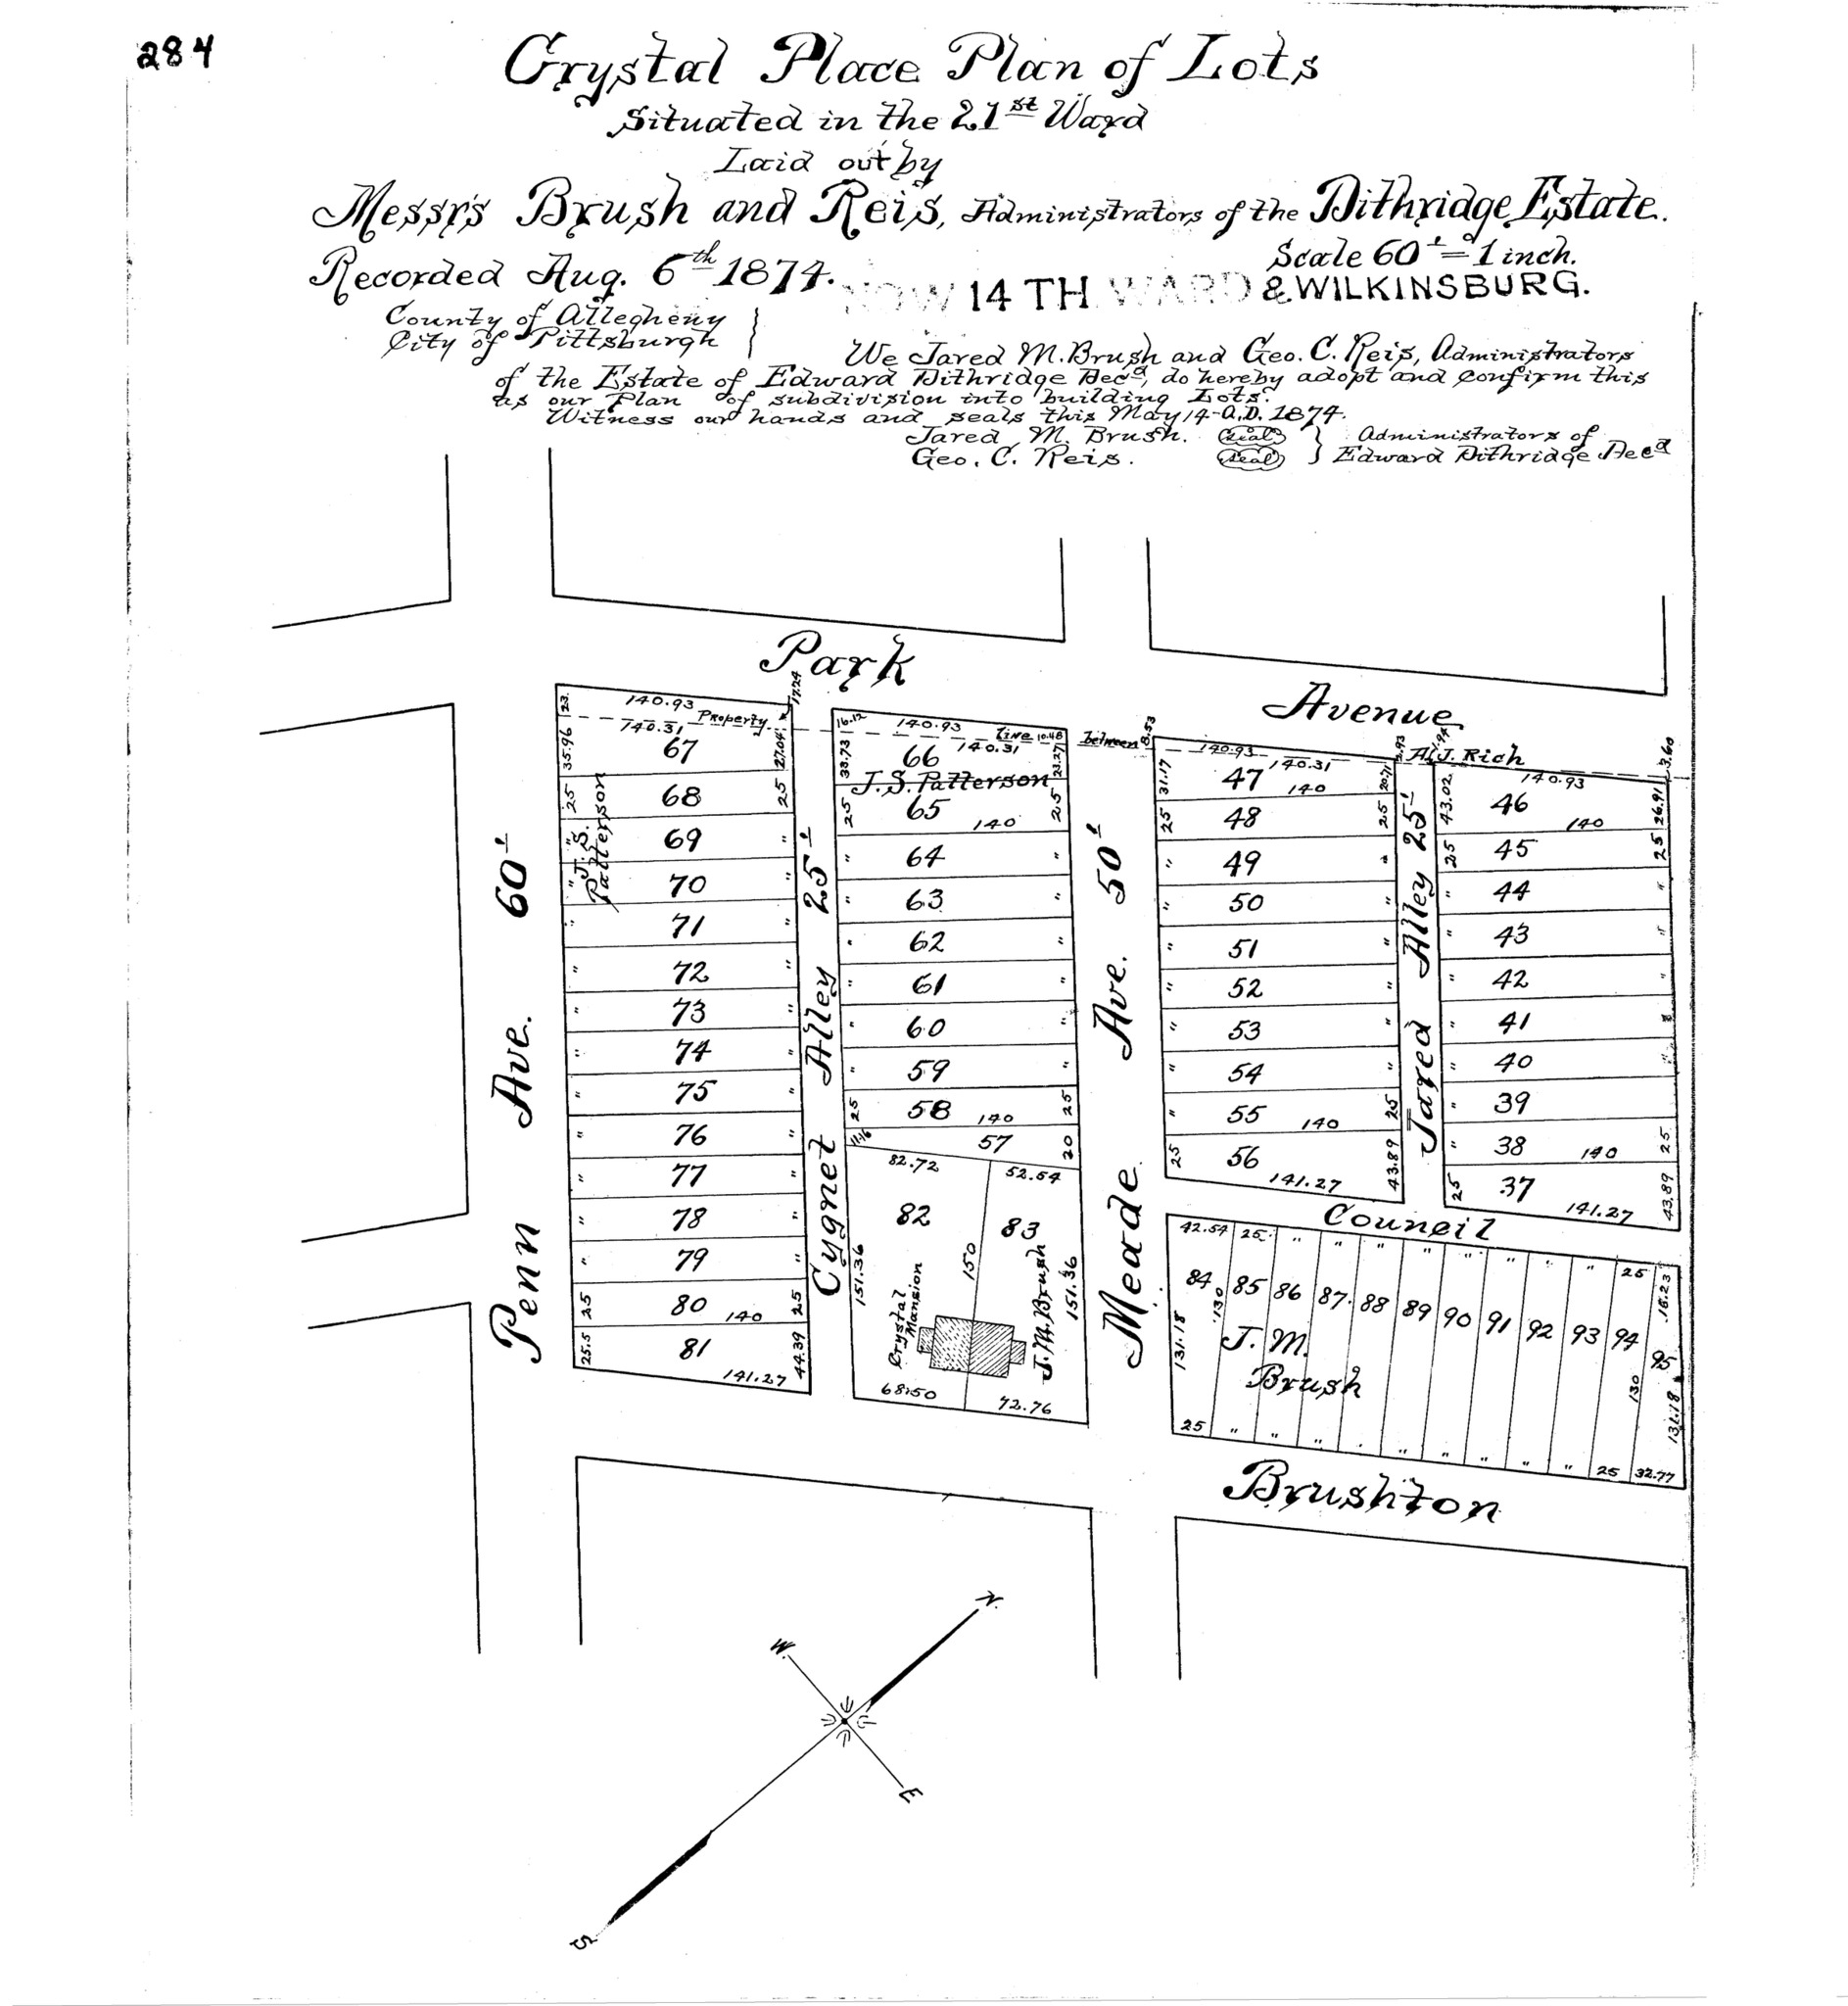 284
Crystal Place Plan of Lots
Situated in the 21st Ward
Laid out by
Messrs Brush and Reis, Administrators of the Dithridge Estate.
Scale 60' = 1 inch.
Recorded Aug. 6th 1874.
NOW 14 TH WARD & WILKINSBURG.
County of Allegheny
City of Pittsburgh
We Jared M. Brush and Geo. C. Reis, Administrators
of the Estate of Edward Dithridge Decd, do hereby adopt and confirm this
as our Plan of subdivision into building Lots.
Witness our hands and seals this May 14 A.D. 1874.
Jared M. Brush. Seal Administrators of
Geo. C. Reis. Seal Edward Dithridge Decd
Park Avenue
Property Line between A. J. Rich
Penn Ave. 60'
23. 140.93 17.24
140.31
35.96 67 27.04
25 68 25
J. S. Patterson
" 69 "
" 70 "
" 71 "
" 72 "
" 73 "
" 74 "
" 75 "
" 76 "
" 77 "
" 78 "
" 79 "
25 80 140 25
25.5 81 141.27 44.39
Cygnet Alley 25'
16.12 140.93 10.48
33.73 66 140.31 23.27
J. S. Patterson
25 65 140 25
" 64 "
" 63 "
" 62 "
" 61 "
" 60 "
" 59 "
25 58 140 25
11.16 57 20
82.72 52.54
82 83
151.36 150 151.36
Crystal Mansion
J. M. Brush
68.50 72.76
Meade Ave. 50'
8.53 140.93
140.31
31.17 47 140 20.71
25 48 25
" 49 "
" 50 "
" 51 "
" 52 "
" 53 "
" 54 "
" 55 140 25
25 56 141.27 43.89
Jared Alley 25'
140.93 3.60
43.02 46 140 26.91
25 45 25
" 44 "
" 43 "
" 42 "
" 41 "
" 40 "
" 39
" 38 140 25
25 37 141.27 43.89
Council
42.54 25 " " " " " " " " 25 16.23
84 85 86 87 88 89 90 91 92 93 94 95
131.18 130 130 131.18
J. M. Brush
25 " " " " " " " " " 25 32.77
Brushton
N.
W.
E
S